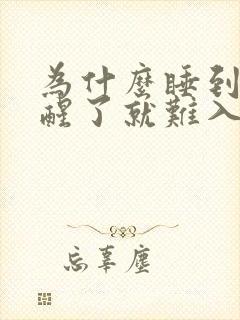 為什麼睡到
醒了就難入
忘辜塵